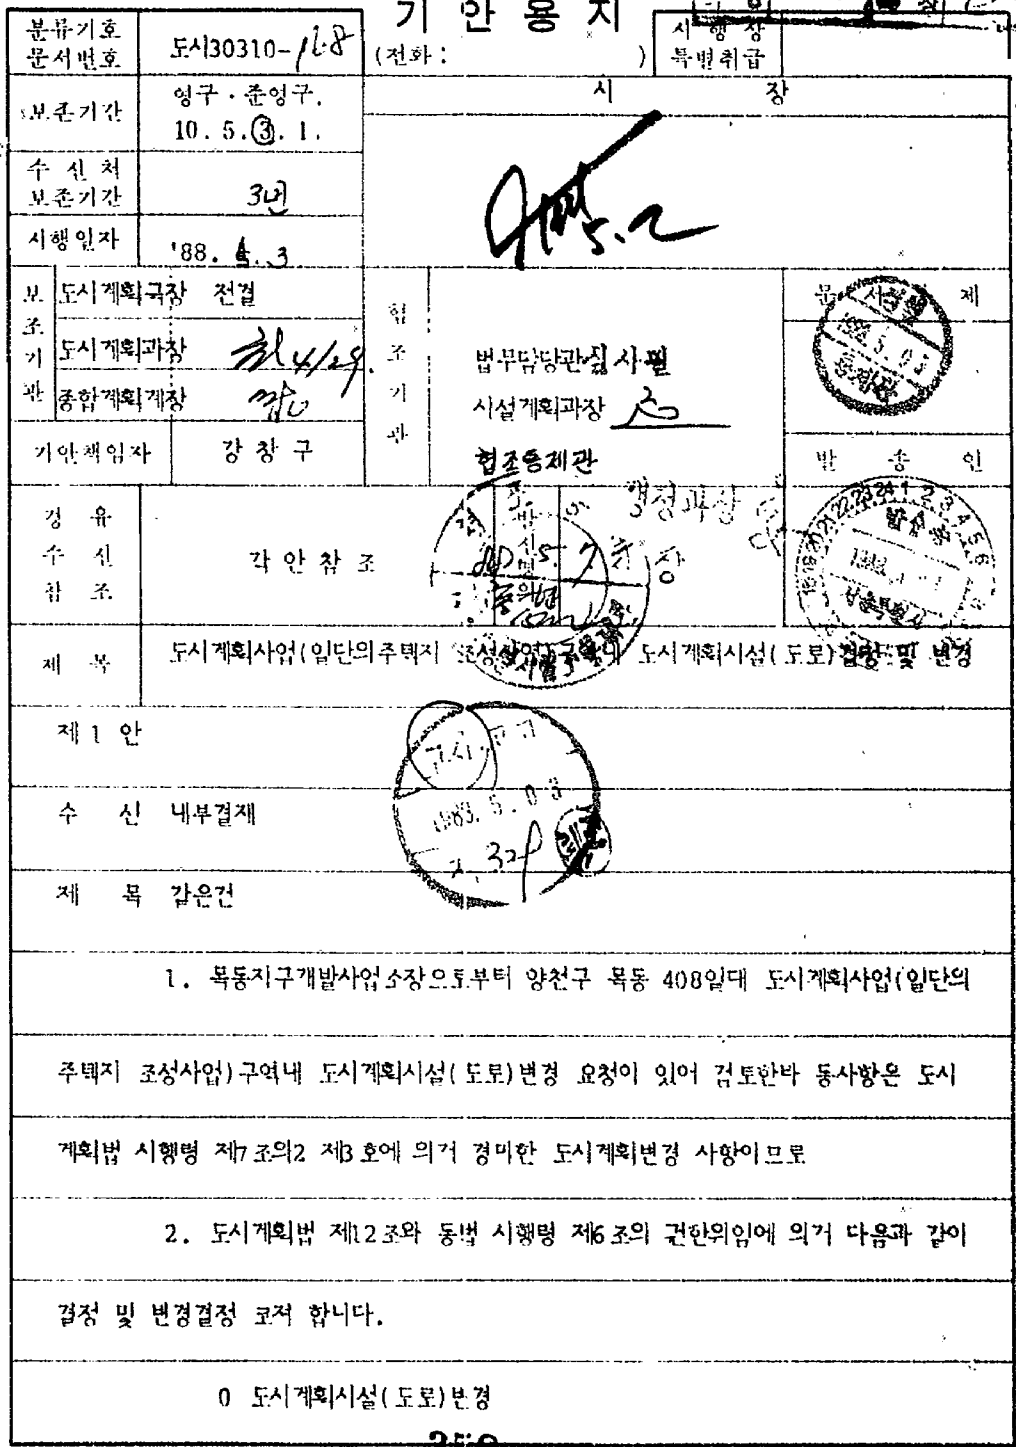 기 안 용 지
분류기호
문서번호
도시30310-
(전화 : )
시 행 상
특별취급
보존기간
영구 · 준영구.
10. 5. ③. 1.
시 장
수 신 처
보존기간
3년
시행일자
'88. . 3
5.2
보조기관
도시계획국장 전결
도시계획과장
4/29.
종합계획계장
협조기관
법무담당관 심사필
시설계획과장
협조통제관
문 서 제
기안책임자
강 창 구
발 송 인
경 유
수 신
참 조
각 안 참 조
행정과장
제 목
도시계획사업(일단의주택지 조성사업)구역내 도시계획시설(도로)결정 및 변경
제 1 안
수 신 내부결재
제 목 같은건
1. 목동지구개발사업소장으로부터 양천구 목동 408일대 도시계획사업(일단의
주택지 조성사업)구역내 도시계획시설(도로)변경 요청이 있어 검토한바 동사항은 도시
계획법 시행령 제7조의2 제3호에 의거 경미한 도시계획변경 사항이므로
2. 도시계획법 제12조와 동법 시행령 제6조의 권한위임에 의거 다음과 같이
결정 및 변경결정 코저 합니다.
0 도시계획시설(도로)변경